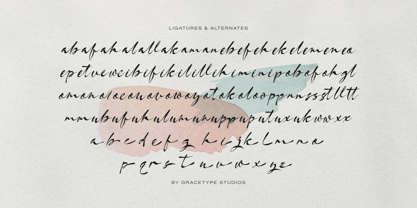 LIGATURES & ALTERNATES
abafahalallakamanebefehekelemeneo
epetvewecibifikilillihiminipobofohgl
omonolocouovowayatokolooppnnssstlltt
mmubufuhulumunuppuputuxukwwxx
a b c d e f g h i j k l m n o
p q r s t u v w x y z
BY GRACETYPE STUDIOS